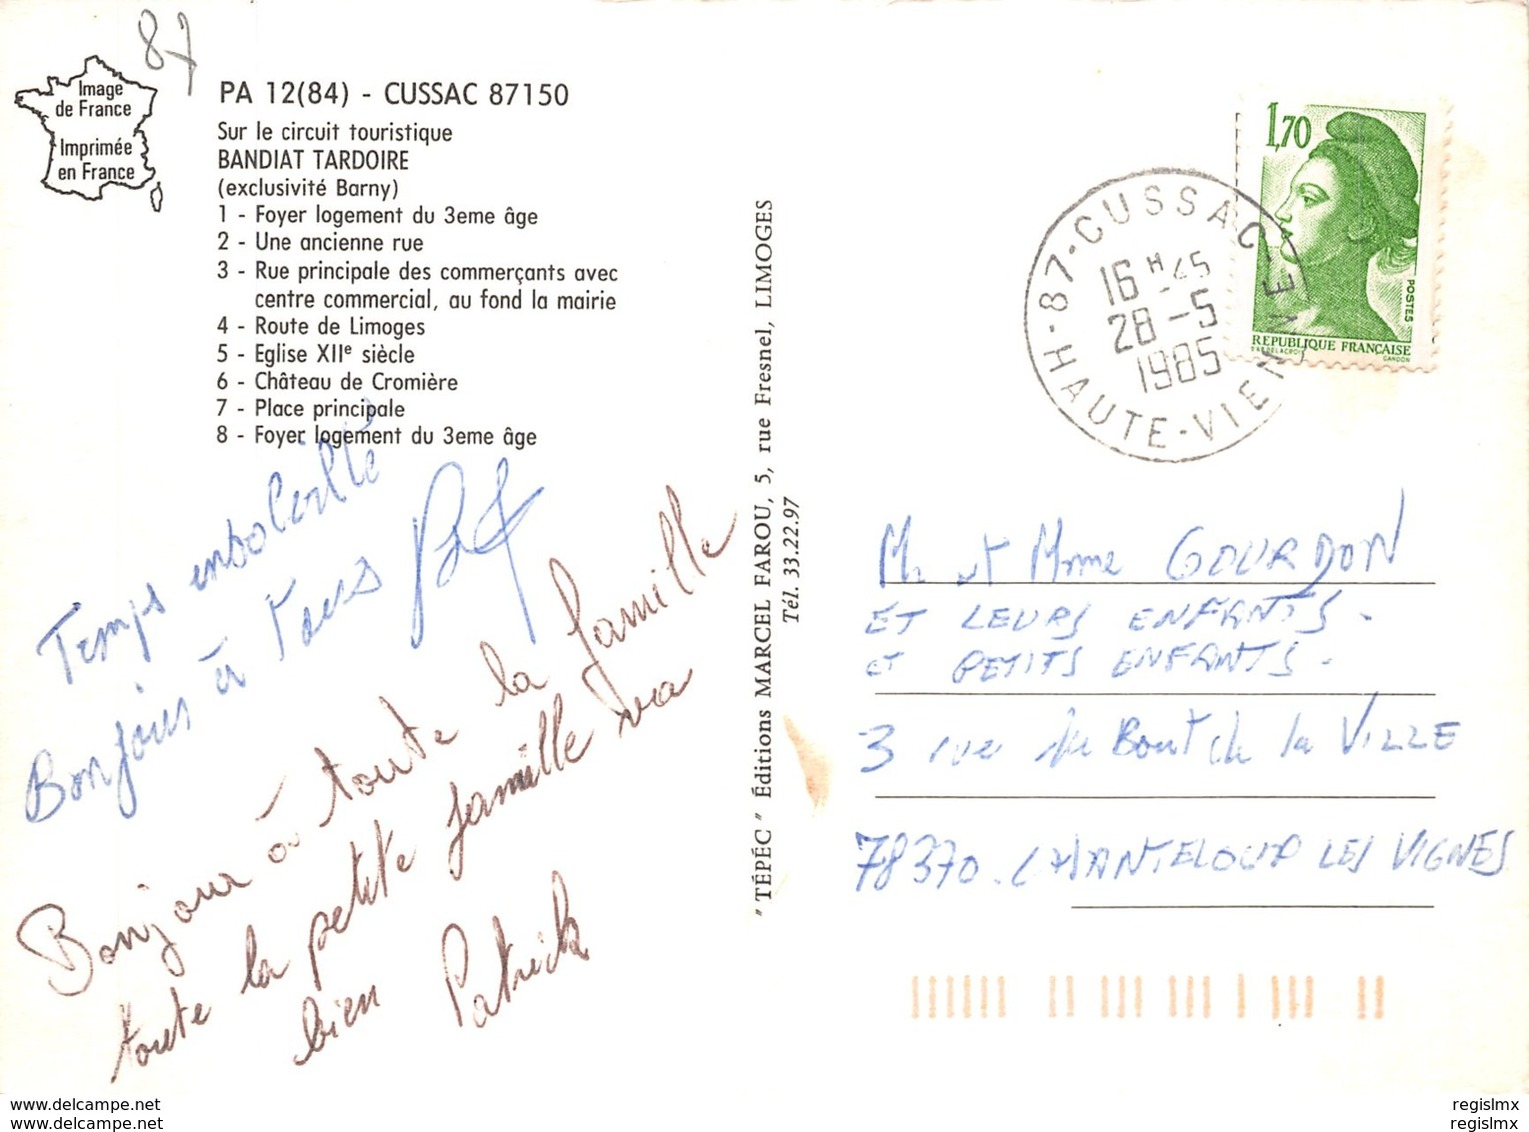 87
Image
de France
Imprimée
en France
PA 12(84) - CUSSAC 87150
Sur le circuit touristique
BANDIAT TARDOIRE
(exclusivité Barny)
1 - Foyer logement du 3eme âge
2 - Une ancienne rue
3 - Rue principale des commerçants avec
centre commercial, au fond la mairie
4 - Route de Limoges
5 - Eglise XIIe siècle
6 - Château de Cromière
7 - Place principale
8 - Foyer logement du 3eme âge
Temps
Bonjour à tous
Bonjour à toute la famille
toute la petite famille va
bien Patrick
"TÉPÉC" Éditions MARCEL FAROU, 5, rue Fresnel, LIMOGES
Tél. 33.22.97
1,70
POSTES
REPUBLIQUE FRANÇAISE
D'AP. DELACROIX GANDON
87-CUSSAC
16H45
28-5
1985
H HAUTE-VIENNE
Mr et Mme GOURDON
ET LEURS ENFANTS -
et PETITS ENFANTS -
3 rue du Bout de la VILLE
78370. CHANTELOUP LES VIGNES
delcampe.net
regislmx
delcampe.net
regislmx